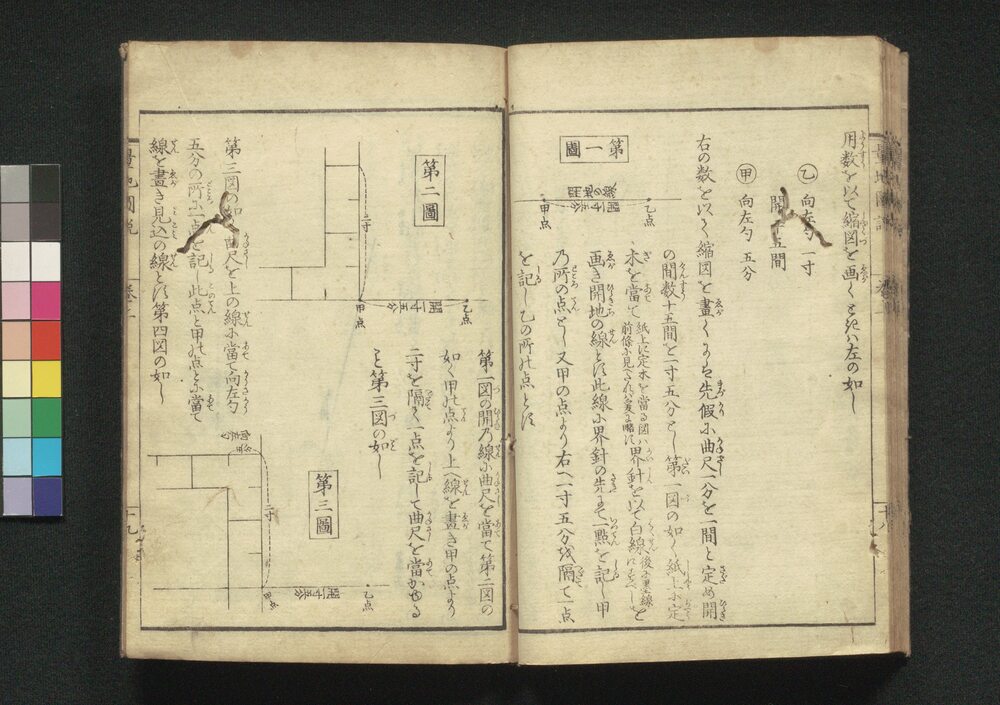 用数を以て縮図を画くときハ左の如し
㋚ 向左勺 一寸
開 十五間
㊙ 向左勺 五分
右の数を以て縮図を畫くにハ先假に曲尺一分を一間と定め開
の間数十五間を一寸五分とし 第一図の如く紙上に定
木を當て 界針を以て白線 を
画き開地の線とす此線に界針の先にて一點を記し甲
乃所の点とし又甲の点より右へ一寸五分を隔て一点
を記し乙の所の点とす
第一圖
乙点
開一寸五分
甲点
第二圖
二寸
乙点
開一寸五分
甲点
第一図の開乃線に曲尺を當て第二図の
如く甲の点より上へ線を畫き甲の点より
二寸を隔て一点を記して曲尺を當かゆる
と第三図の如し
第三図の如 曲尺を上の線に當て向左勺
五分の所に一点を記し此点と甲の点とに當て
線を畫き見込の線とす第四図の如し
第三圖
二寸
乙点
開一寸五分
甲点